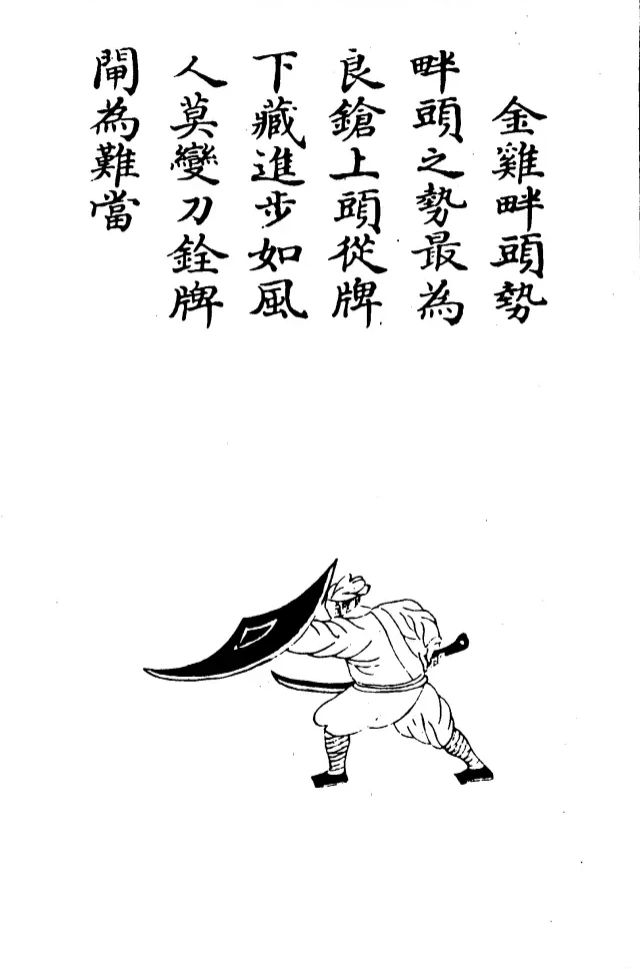 金雞畔頭勢
畔頭之勢最為
良鎗上頭從牌
下藏進步如風
人莫變刀銓牌
閘為難當